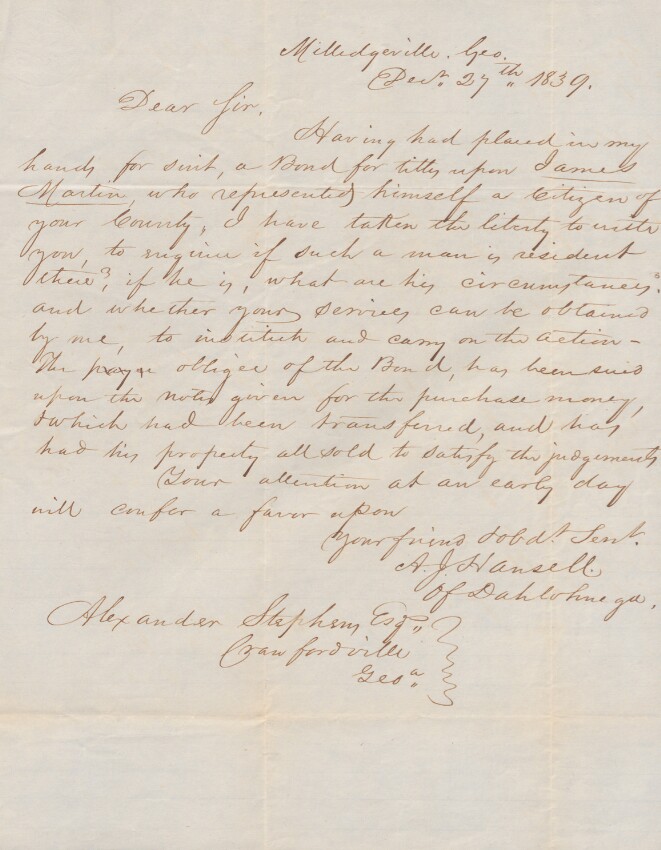 Milledgeville. Geo.
Decr. 27th " 1839.
Dear Sir,
Having had placed in my
hands for suit, a Bond for titles upon James
Martin, who represented himself a Citizen of
your County, I have taken the liberty to write
you, to enquire if such a man is resident
there?, if he is, what are his circumstances?
and whether your services can be obtained
by me, to institute and carry on the action –
The obligee of the Bond, has been sued
upon the notes given for the purchase money,
& which had been transferred, and has
had his property all sold to satisfy the judgements
Your attention at an early day
will confer a favor upon
your friend & obdt. Sert.
A. J. Hansell.
Of Dahlohnega.
Alexander Stephens Esqr "
Crawfordville
Geoa "